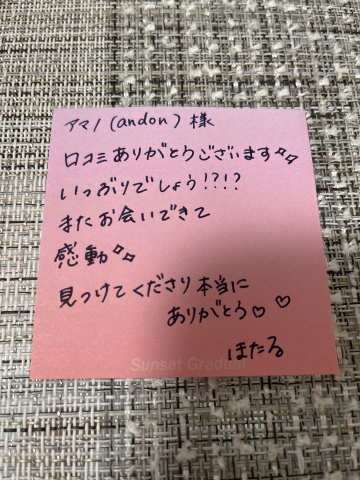 アマノ(andon)様
口コミありがとうございます✨
いつぶりでしょう!?!?
またお会いできて
感動✨
見つけてくださり本当に
ありがとう♡ ♡
ほたる
Sunset Gradual